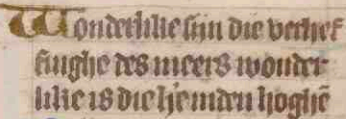 Wonderlilie sijn die verhef
finghe des meers wonder
lilie is die h'e inden hoghē